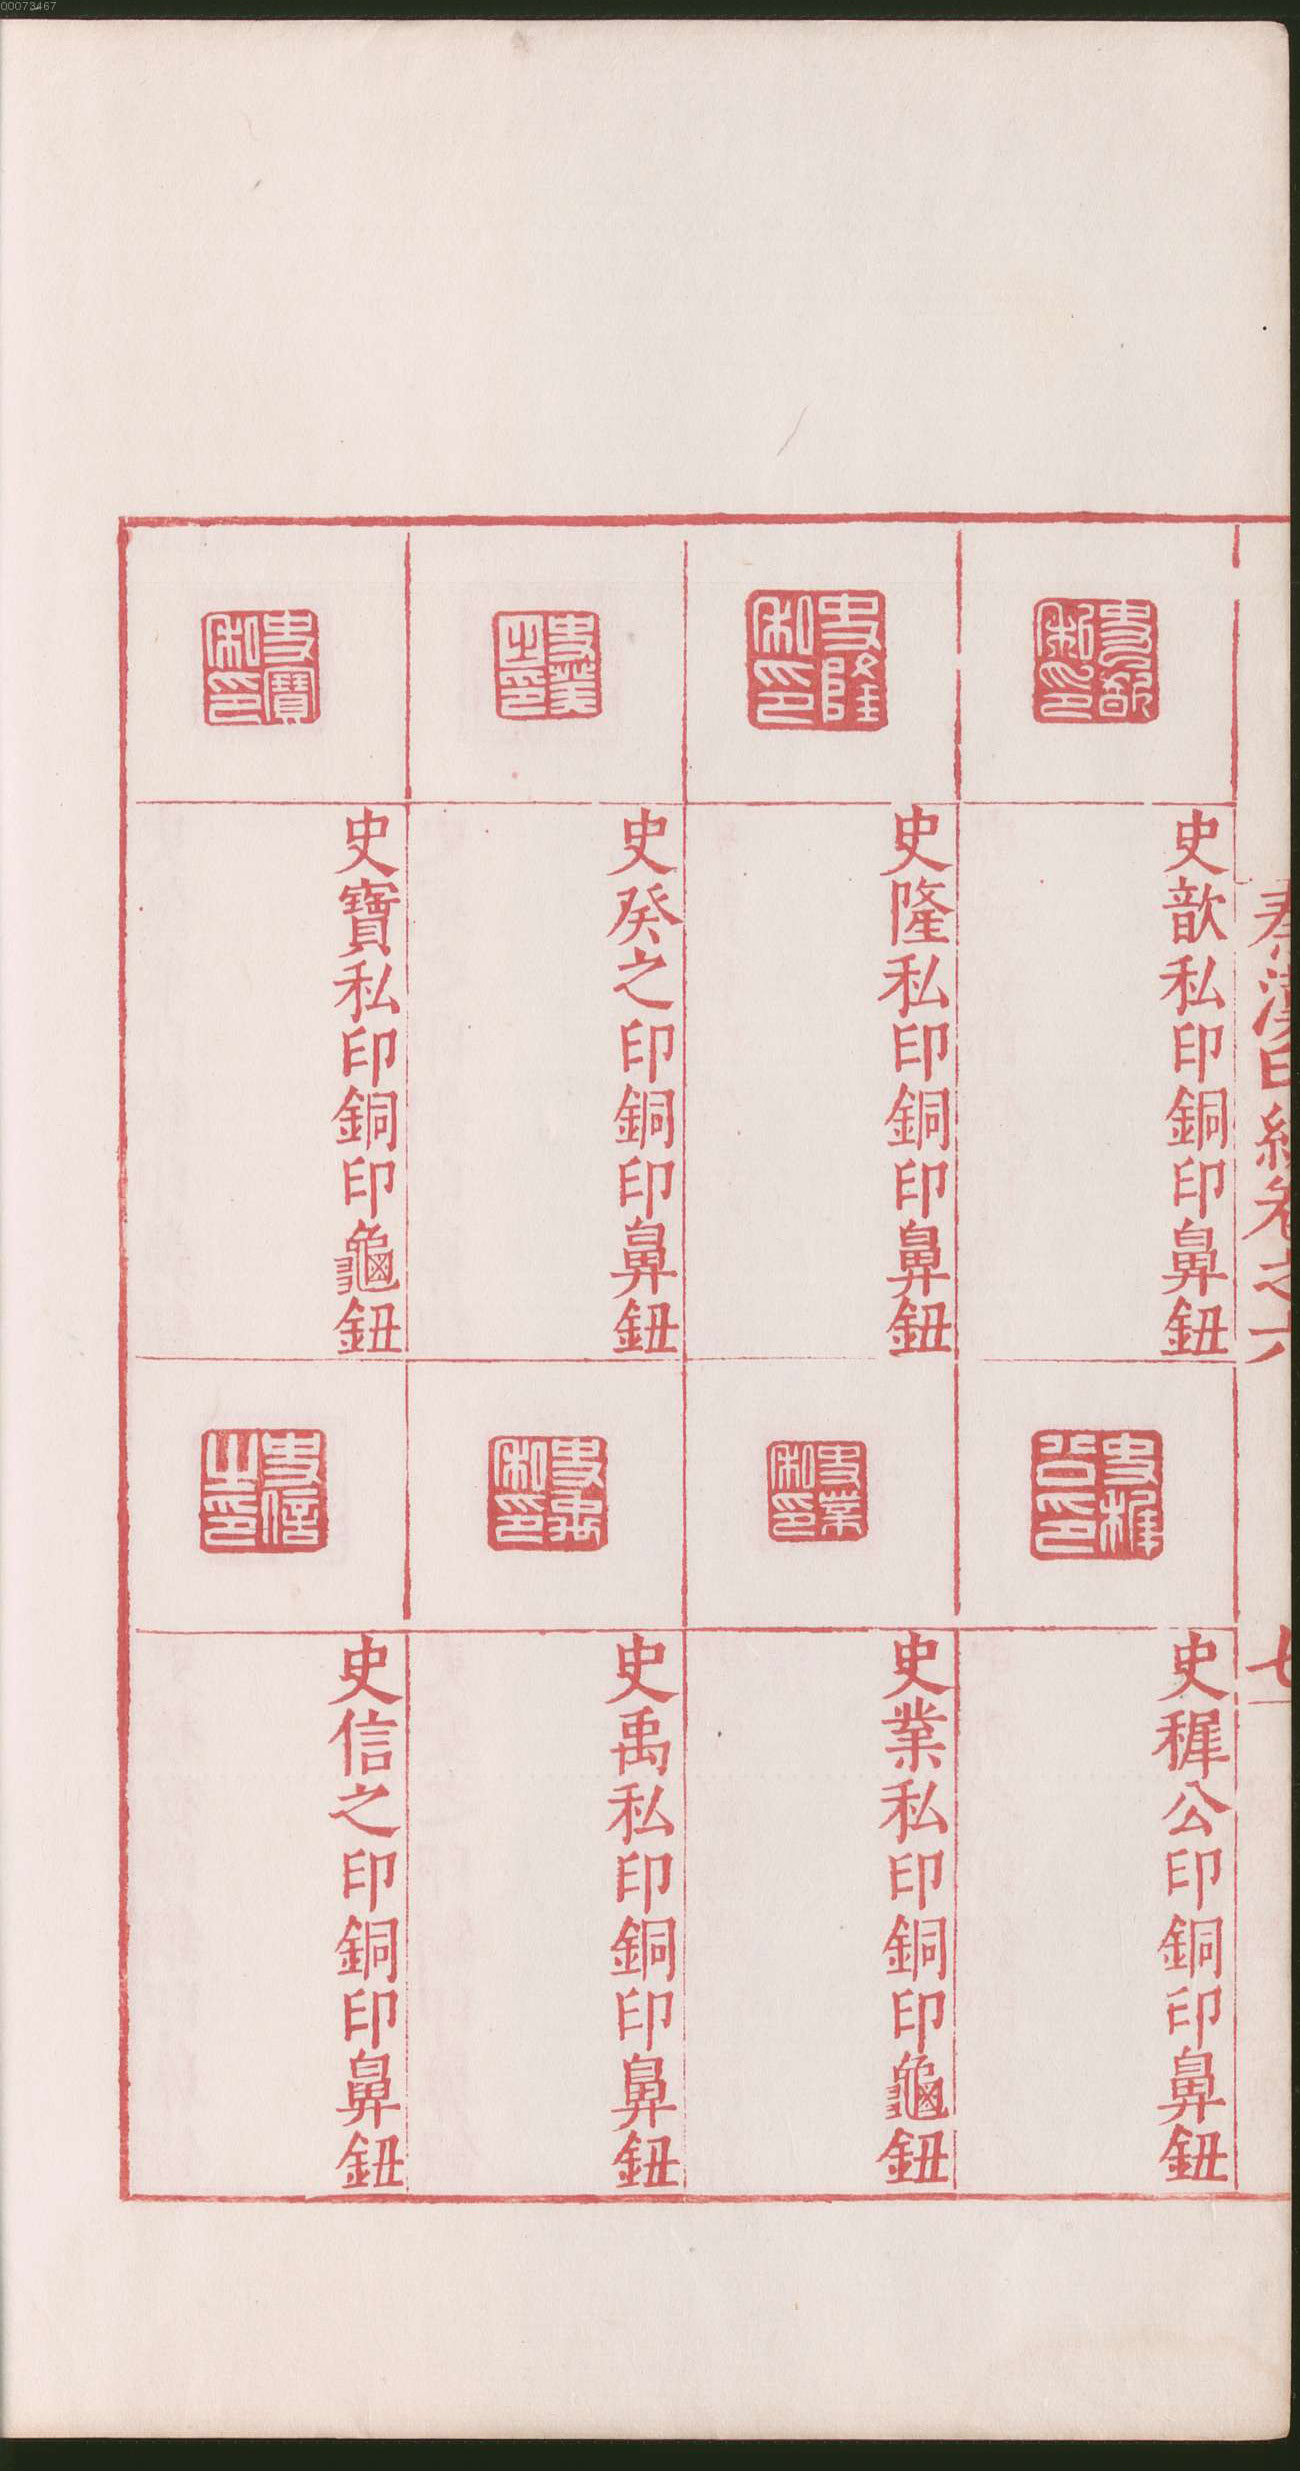 00073467
秦漢印統卷之六
七
史歆私印銅印鼻鈕
史隆私印銅印鼻鈕
史癸之印銅印鼻鈕
史寶私印銅印龜鈕
史穉公印銅印鼻鈕
史業私印銅印龜鈕
史禹私印銅印鼻鈕
史信之印銅印鼻鈕
史歆私印
史隆私印
史癸之印
史寶私印
史穉公印
史業私印
史禹私印
史信之印